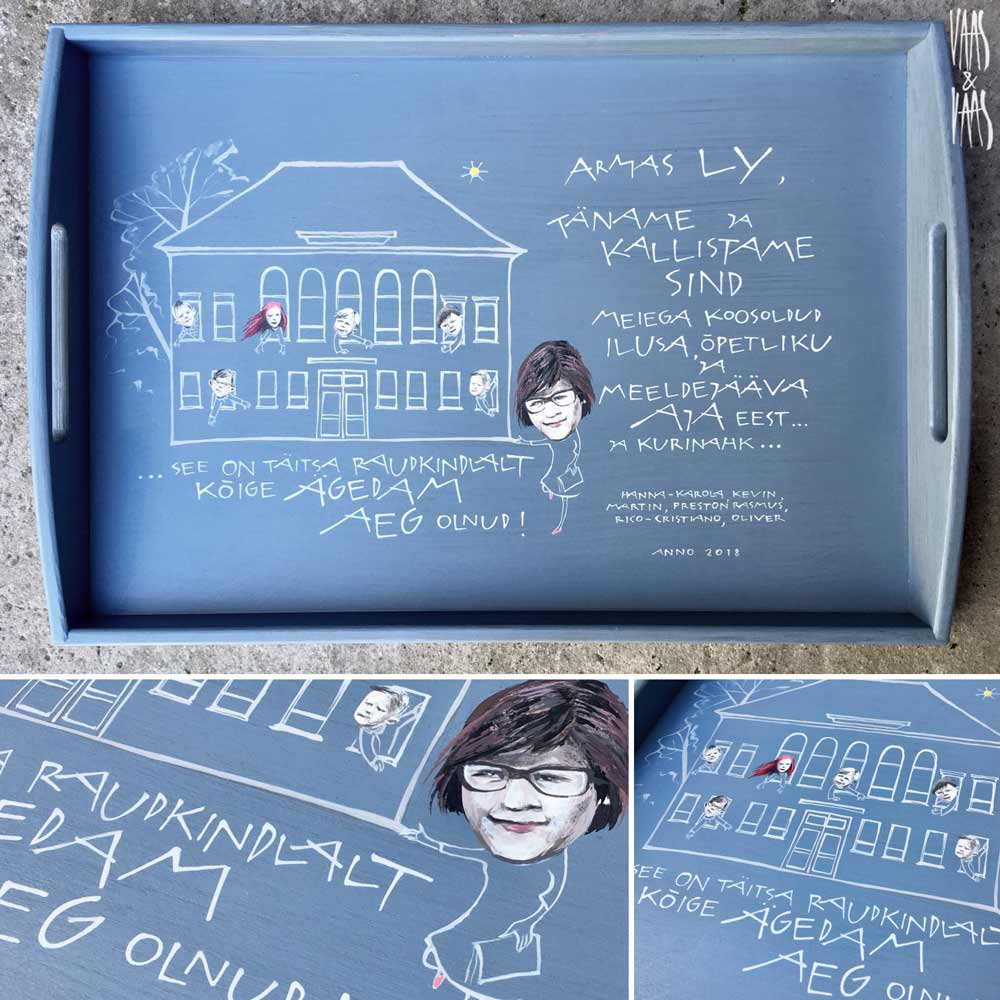 VAAS
&
VAAS
ARMAS LY,
TÄNAME JA
KALLISTAME
SIND
MEIEGA KOOSOLDUD
ILUSA, ÕPETLIKU
JA
MEELDEJÄÄVA
AJA EEST...
JA KURINAHK...
...SEE ON TÄITSA RAUDKINDLALT
KÕIGE ÄGEDAM
AEG OLNUD!
HANNA-KAROLA, KEVIN,
MARTIN, PRESTON RASMUS,
RICO-CRISTIANO, OLIVER
ANNO 2018
A RAUDKINDLALT
EDAM
EG OLNUD!
SEE ON TÄITSA RAUDKINDLALT
KÕIGE ÄGEDAM
AEG OLNU